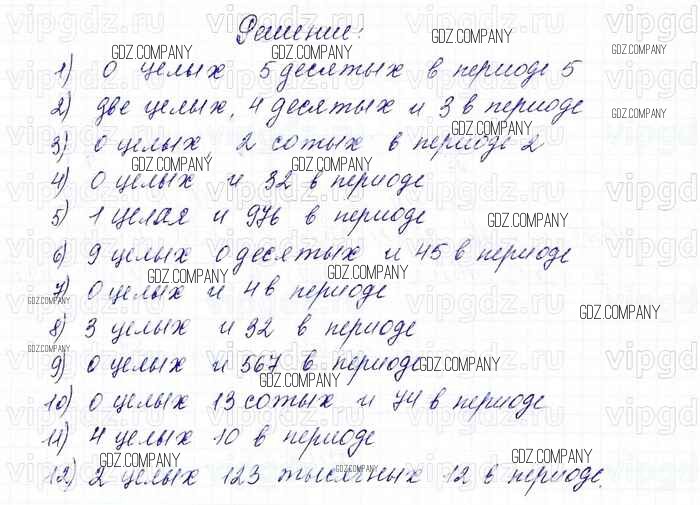 Решение:
1) 0 целых 5 десятых в периоде 5
2) две целых, 4 десятых и 3 в периоде
3) 0 целых 2 сотых в периоде 2
4) 0 целых и 32 в периоде
5) 1 целая и 976 в периоде
6) 9 целых 0 десятых и 45 в периоде
7) 0 целых и 4 в периоде
8) 3 целых и 32 в периоде
9) 0 целых и 567 в периоде
10) 0 целых 13 сотых и 74 в периоде
11) 4 целых 10 в периоде
12) 2 целых 123 тысячных 12 в периоде.